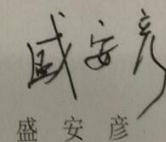 盛安彦
盛安彦